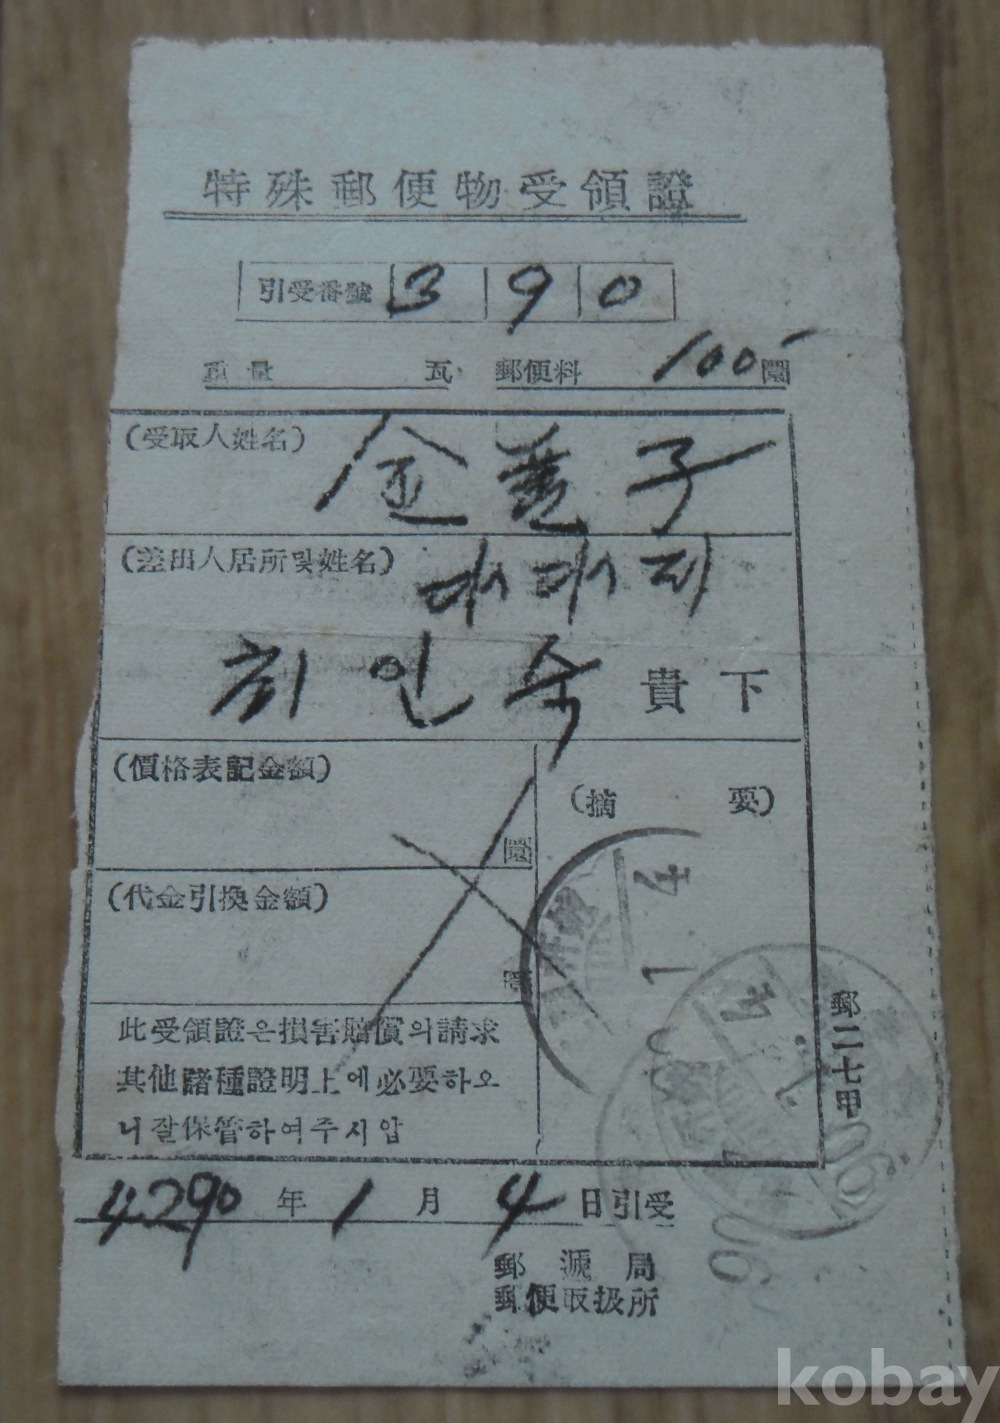 特殊郵便物受領證
引受番號 390
重量 瓦 郵便料 100 圜
(受取人姓名)
金 子
(差出人居所및姓名)
대대리
최인수 貴下
(價格表記金額)
圜
(摘 要)
(代金引換金額)
圜
此受領證은損害賠償의請求
其他諸種證明上에必要하오
니잘保管하여주시압
郵二七甲
90 1 4
4290年1月4日引受
郵遞局
郵便取扱所
90
kobay